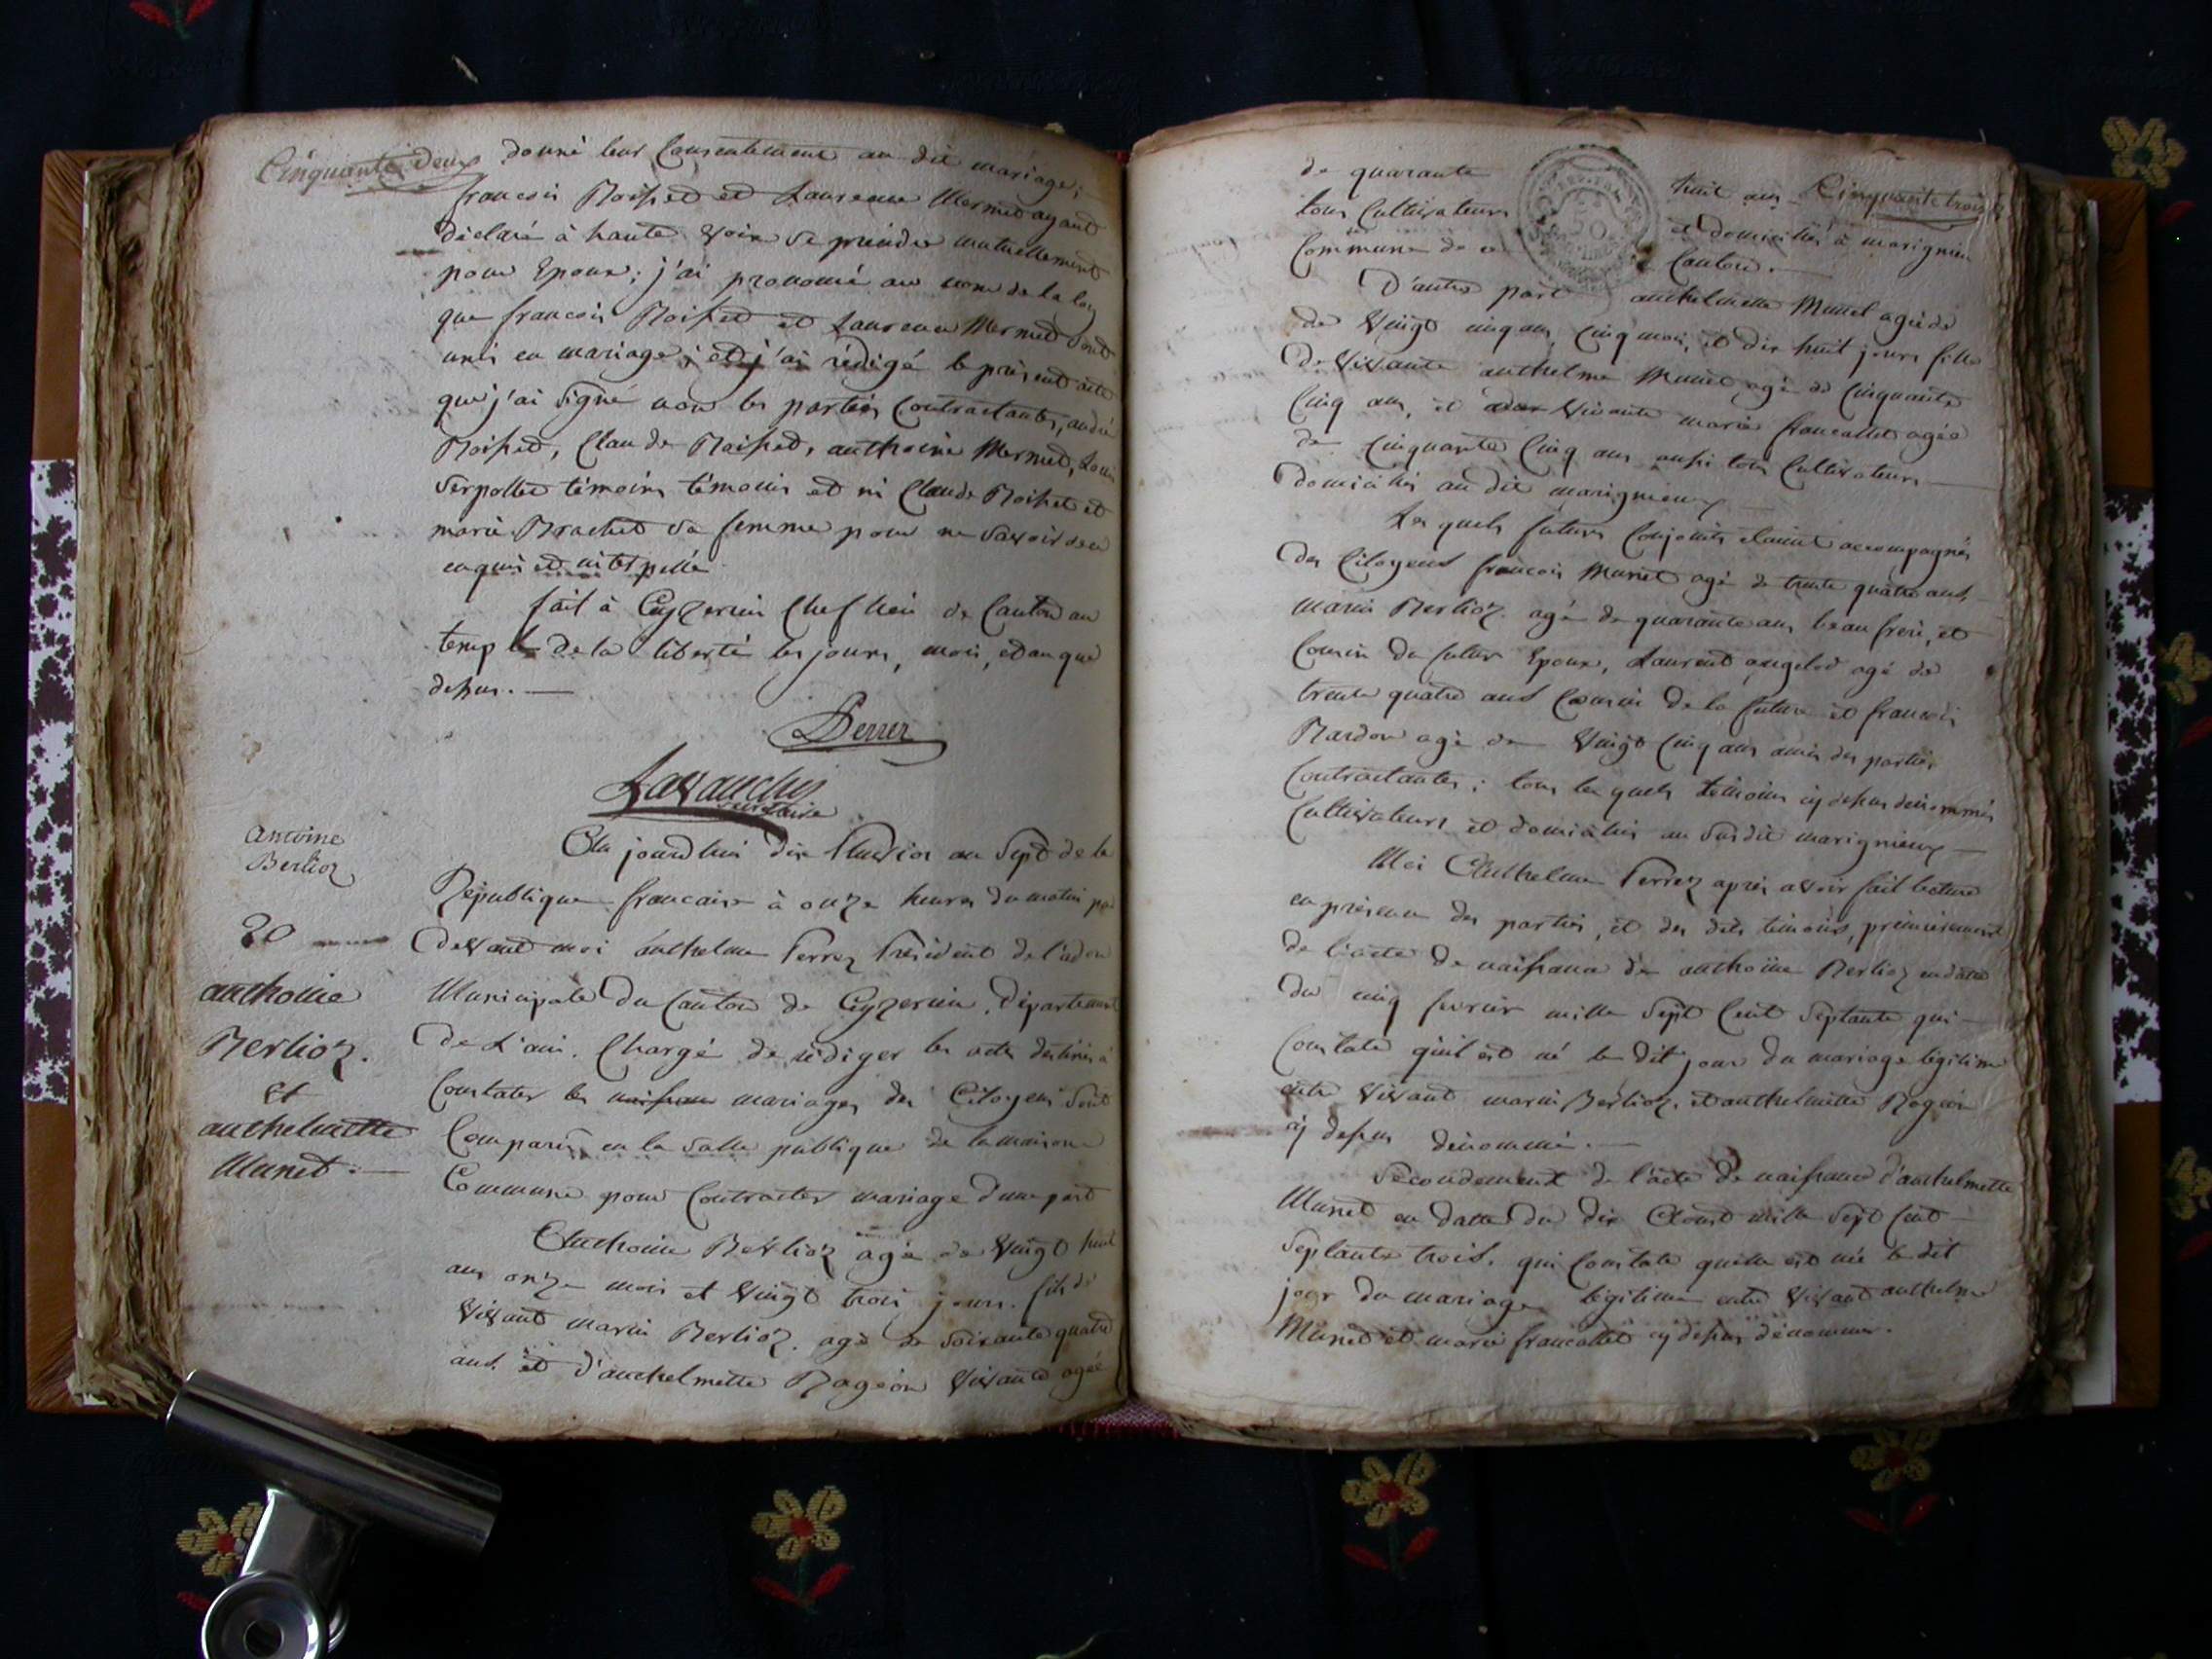 Cinquante deux
donné leur Consentement au dit mariage;
francois Roisset et Laurence Mermet ayant
déclaré à haute voix se prendre mutuellement
pour Epoux; j'ai prononcé au nom de la loy
que francois Roisset et Laurence Mermet sont
unis en mariage; et j'ai rédigé le présent acte
que j'ai signé non les parties Contractantes, andré
Roisset, Claude Roisset, anthoine Mermet, Louis
Serpollet témoins témoins et ni Claude Roisset et
marie Brachet sa femme pour ne savoir de ce
enquis et interpellé
fait à Ceyzerin Chef lieu de Canton au
temple de la liberté les jours, mois, et an que
dessus.
Perrer
Lavanchy
secretaire
Antoine
Berlioz
20
anthoine
Berlioz.
et
anthelmette
Munet.
Au jourdhui dix Pluviose an Sept de la
République francaise à onze heures du matin par
devant moi anthelme Perrez Président de l'adon
Municipale du Canton de Ceyzerin, Département
de L'ain. Chargé de rédiger les actes destinés à
Constater les naissance mariages des Citoyens sont
Comparus en la salle publique de la maison
Commune pour Contracter mariage d'une part
Anthoine Berlioz agé de vingt huit
ans onze mois et vingt trois jours. fils de
vivant marin Berlioz. agé de soixante quatre
ans. et d'anthelmette Rageon vivante agée
Cinquante trois
de quarante huit ans
tous Cultivateurs et domiciliés à marignieu
Commune de ce Canton.
D'autre part anthelmette Munet agée de
de vingt cinq ans, cinq mois, et dix huit jours fille
de vivante anthelme Munet agé de Cinquante
Cinq ans, et vivante marie francallet agée
de Cinquante Cinq ans aussi tous Cultivateurs
domiciliés au dit marignieux
Les quels futurs Conjoints étaient accompagnés
des Citoyens francois Munet agé de trente quatre ans,
marin Berlioz agé de quarante ans beau frere, et
Cousin du futur Epoux, Laurent angelod agé de
trente quatre ans Cousin de la future et francois
Bardon agé de vingt Cinq ans amis des parties
Contractantes; tous les quels témoins cy dessus dénommés
Cultivateurs et domiciliés au susdit marignieux
Moi Anthelme Perrez après avoir fait lecture
en présence des parties, et des dits témoins, premièrement
de l'acte de naissance de anthoine Berlioz en date
du cinq fevrier mille Sept Cent Septante qui
Constate qu'il est né le dit jour du mariage légitime
entre vivant marin Berlioz, et anthelmette Rogeon
cy dessus dénommé.
Secondement de l'acte de naissance d'anthelmette
Munet en datte du dix Aoust mille Sept Cent
Septante trois. qui Constate quelle est née le dit
jour du mariage légitime entre vivant anthelme
Munet et marie francallet cy dessus dénommer.